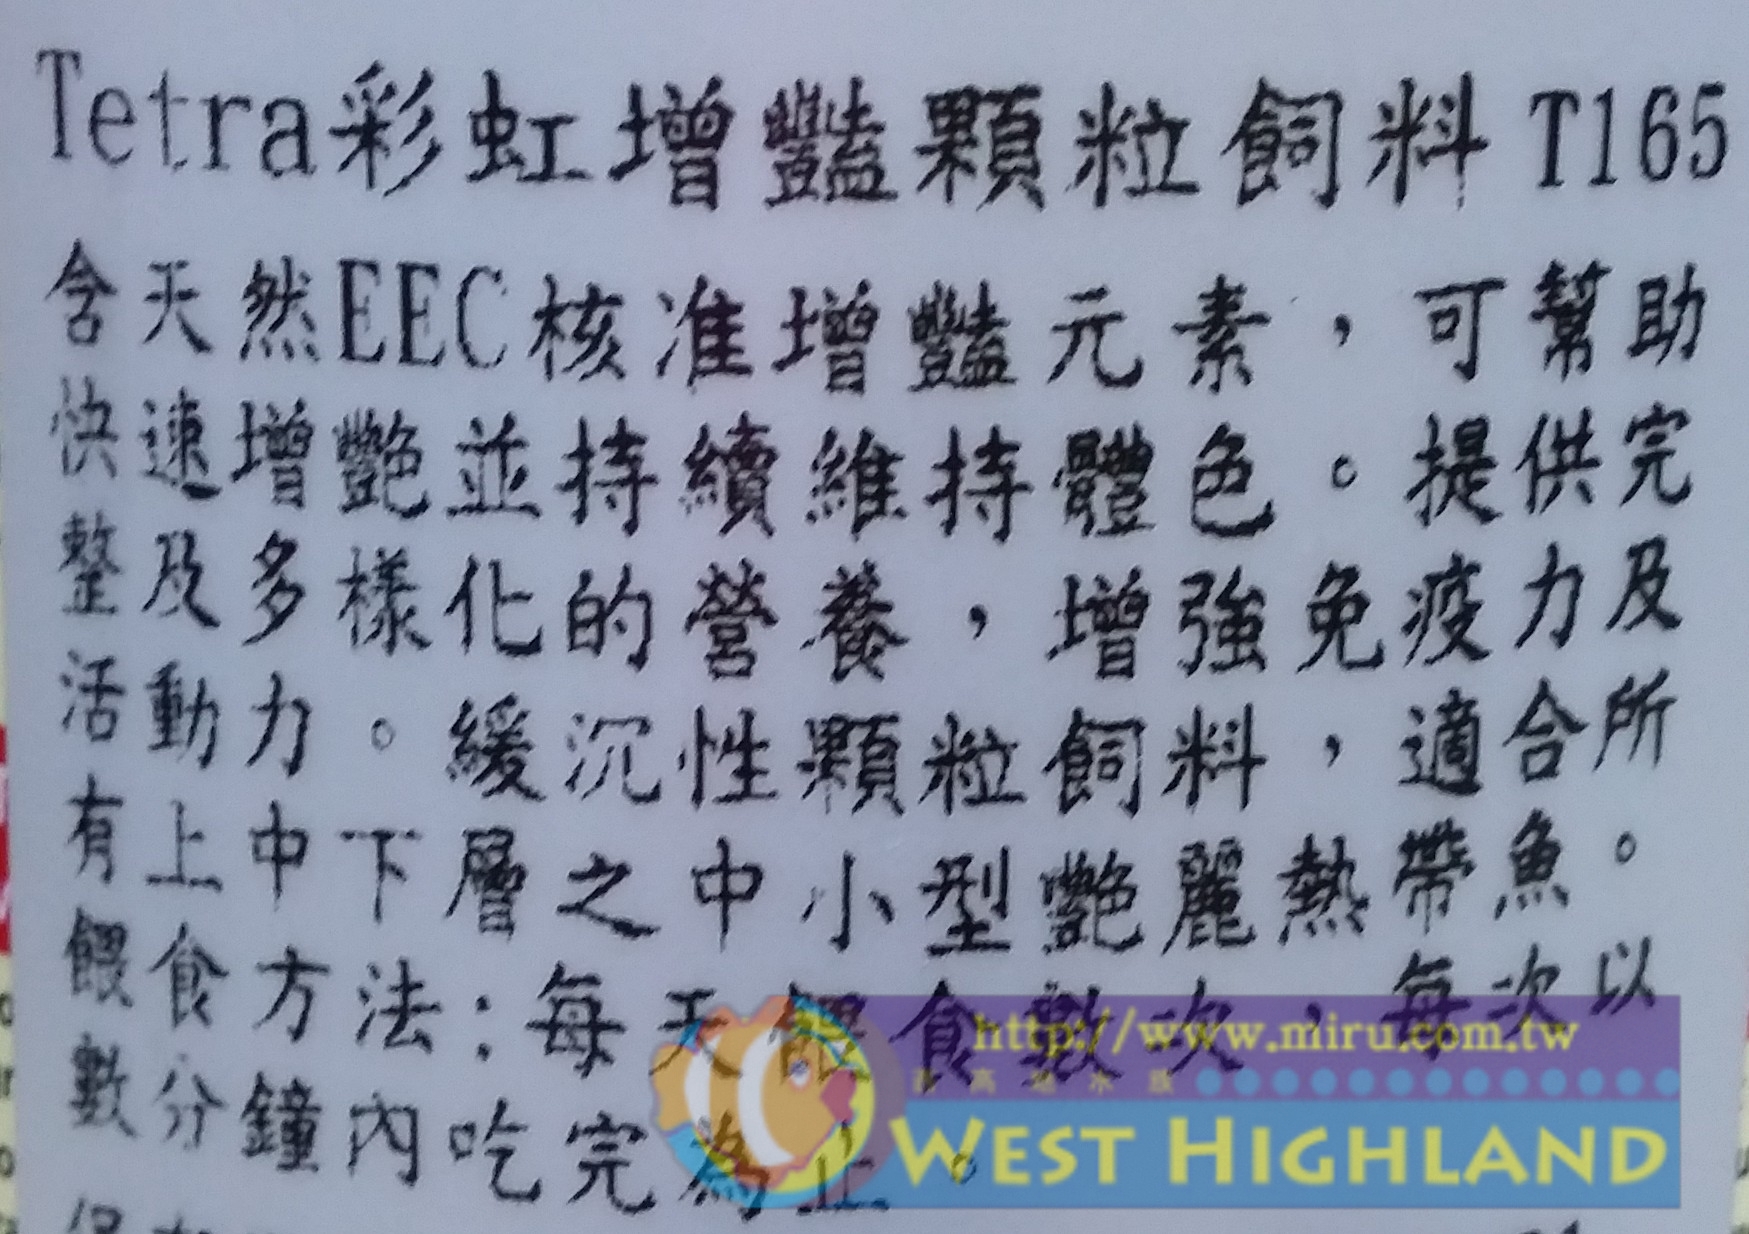 Tetra彩虹增豔顆粒飼料 T165
含天然EEC核准增豔元素，可幫助
快速增艷並持續維持體色。提供完
整及多樣化的營養，增強免疫力及
活動力。緩沉性顆粒飼料，適合所
有上中下層之中小型艷麗熱帶魚。
餵食方法：每天餵食數次，每次以
數分鐘內吃完為止。
http://www.miru.com.tw
西高地水族
WEST HIGHLAND